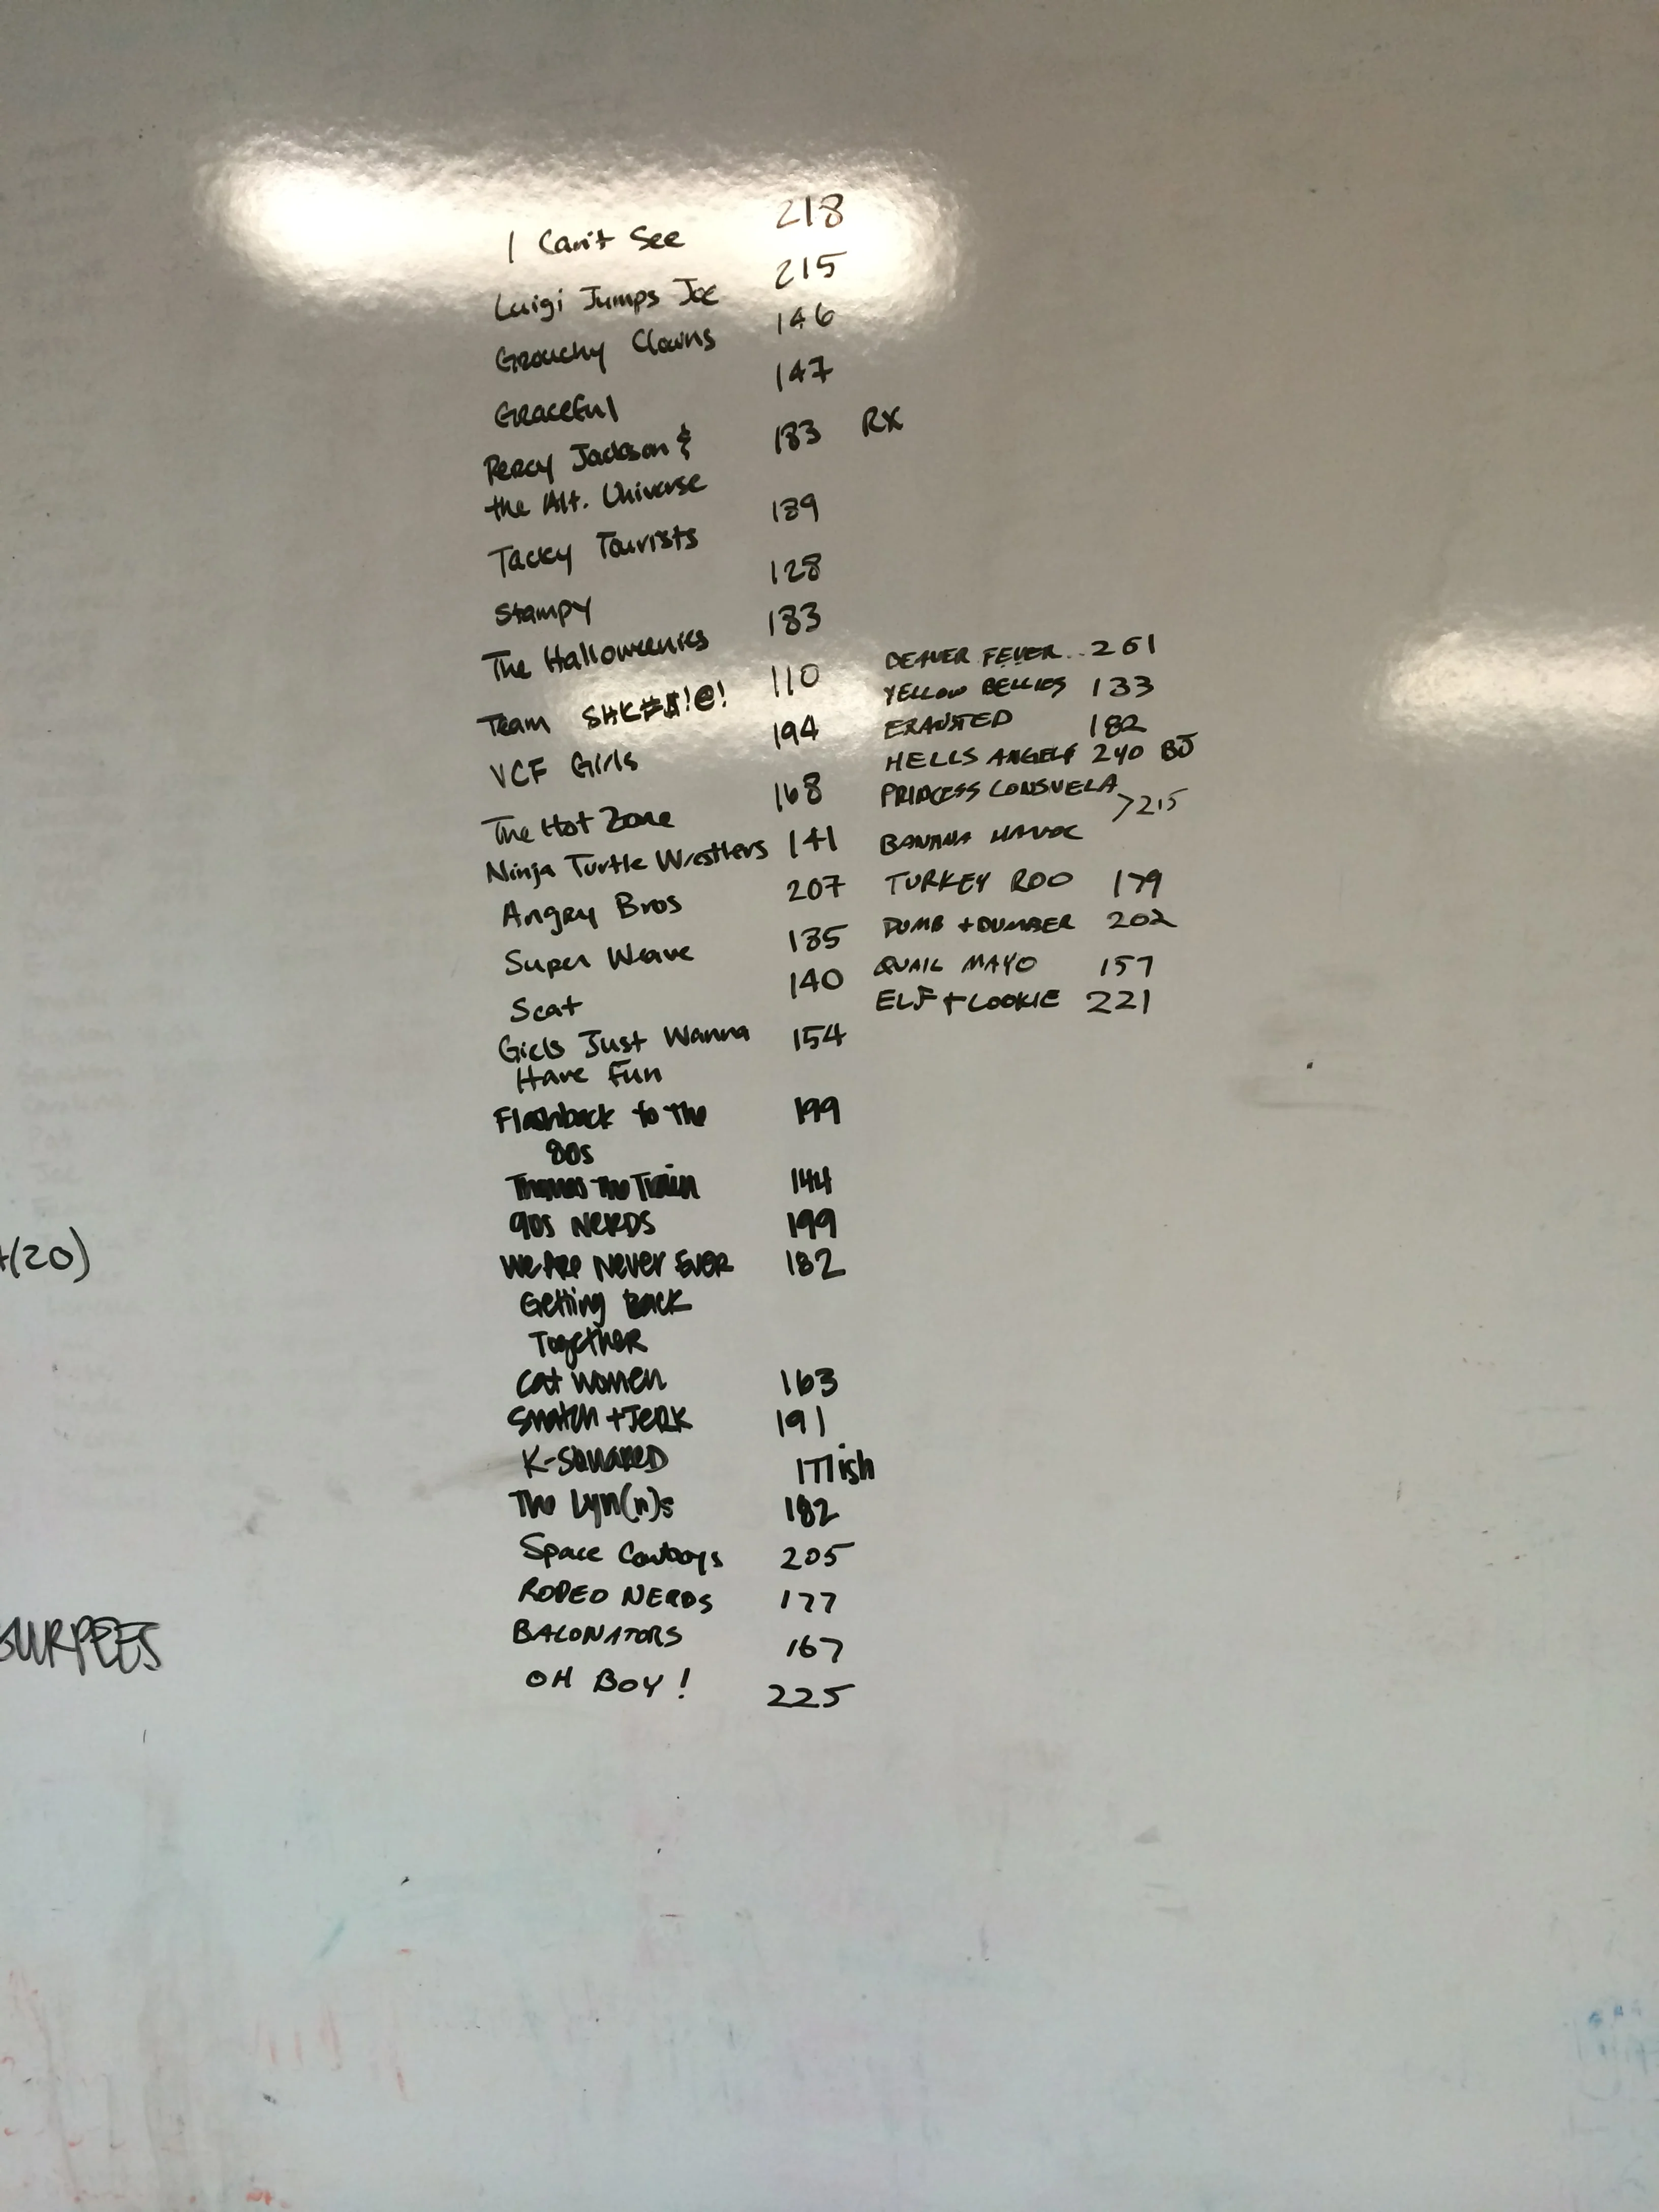 I Can't See 218
Luigi Jumps Joe 215
Grouchy Clowns 146
Graceful 147
Percy Jackson & 183 RX
the Alt. Universe
Tacky Tourists 189
Stampy 128
The Halloweenies 183
Team SHK##!@! 110
VCF Girls 194
The Hot Zone 168
Ninja Turtle Wrestlers 141
Angry Bros 207
Super Weave 185
Scat 140
Girls Just Wanna 154
Have Fun
Flashback to The 199
80s
Thomas The Train 144
90s NERDS 199
We Are Never Ever 182
Getting Back
Together
Cat Women 163
Snatch + Jerk 191
K-Squared 171ish
The Lyn(n)s 182
Space Cowboys 205
RODEO NERDS 177
BACONATORS 167
OH BOY! 225
FEVER.. 261
YELLOW BELLIES 133
182
HELLS ANGELS 240 BJ
PRINCESS CONSUELA
>215
BANANA HAVOC
TURKEY ROO 179
DUMB + DUMBER 202
QUAIL MAYO 157
ELF + COOKIE 221
(20)
BURPEES